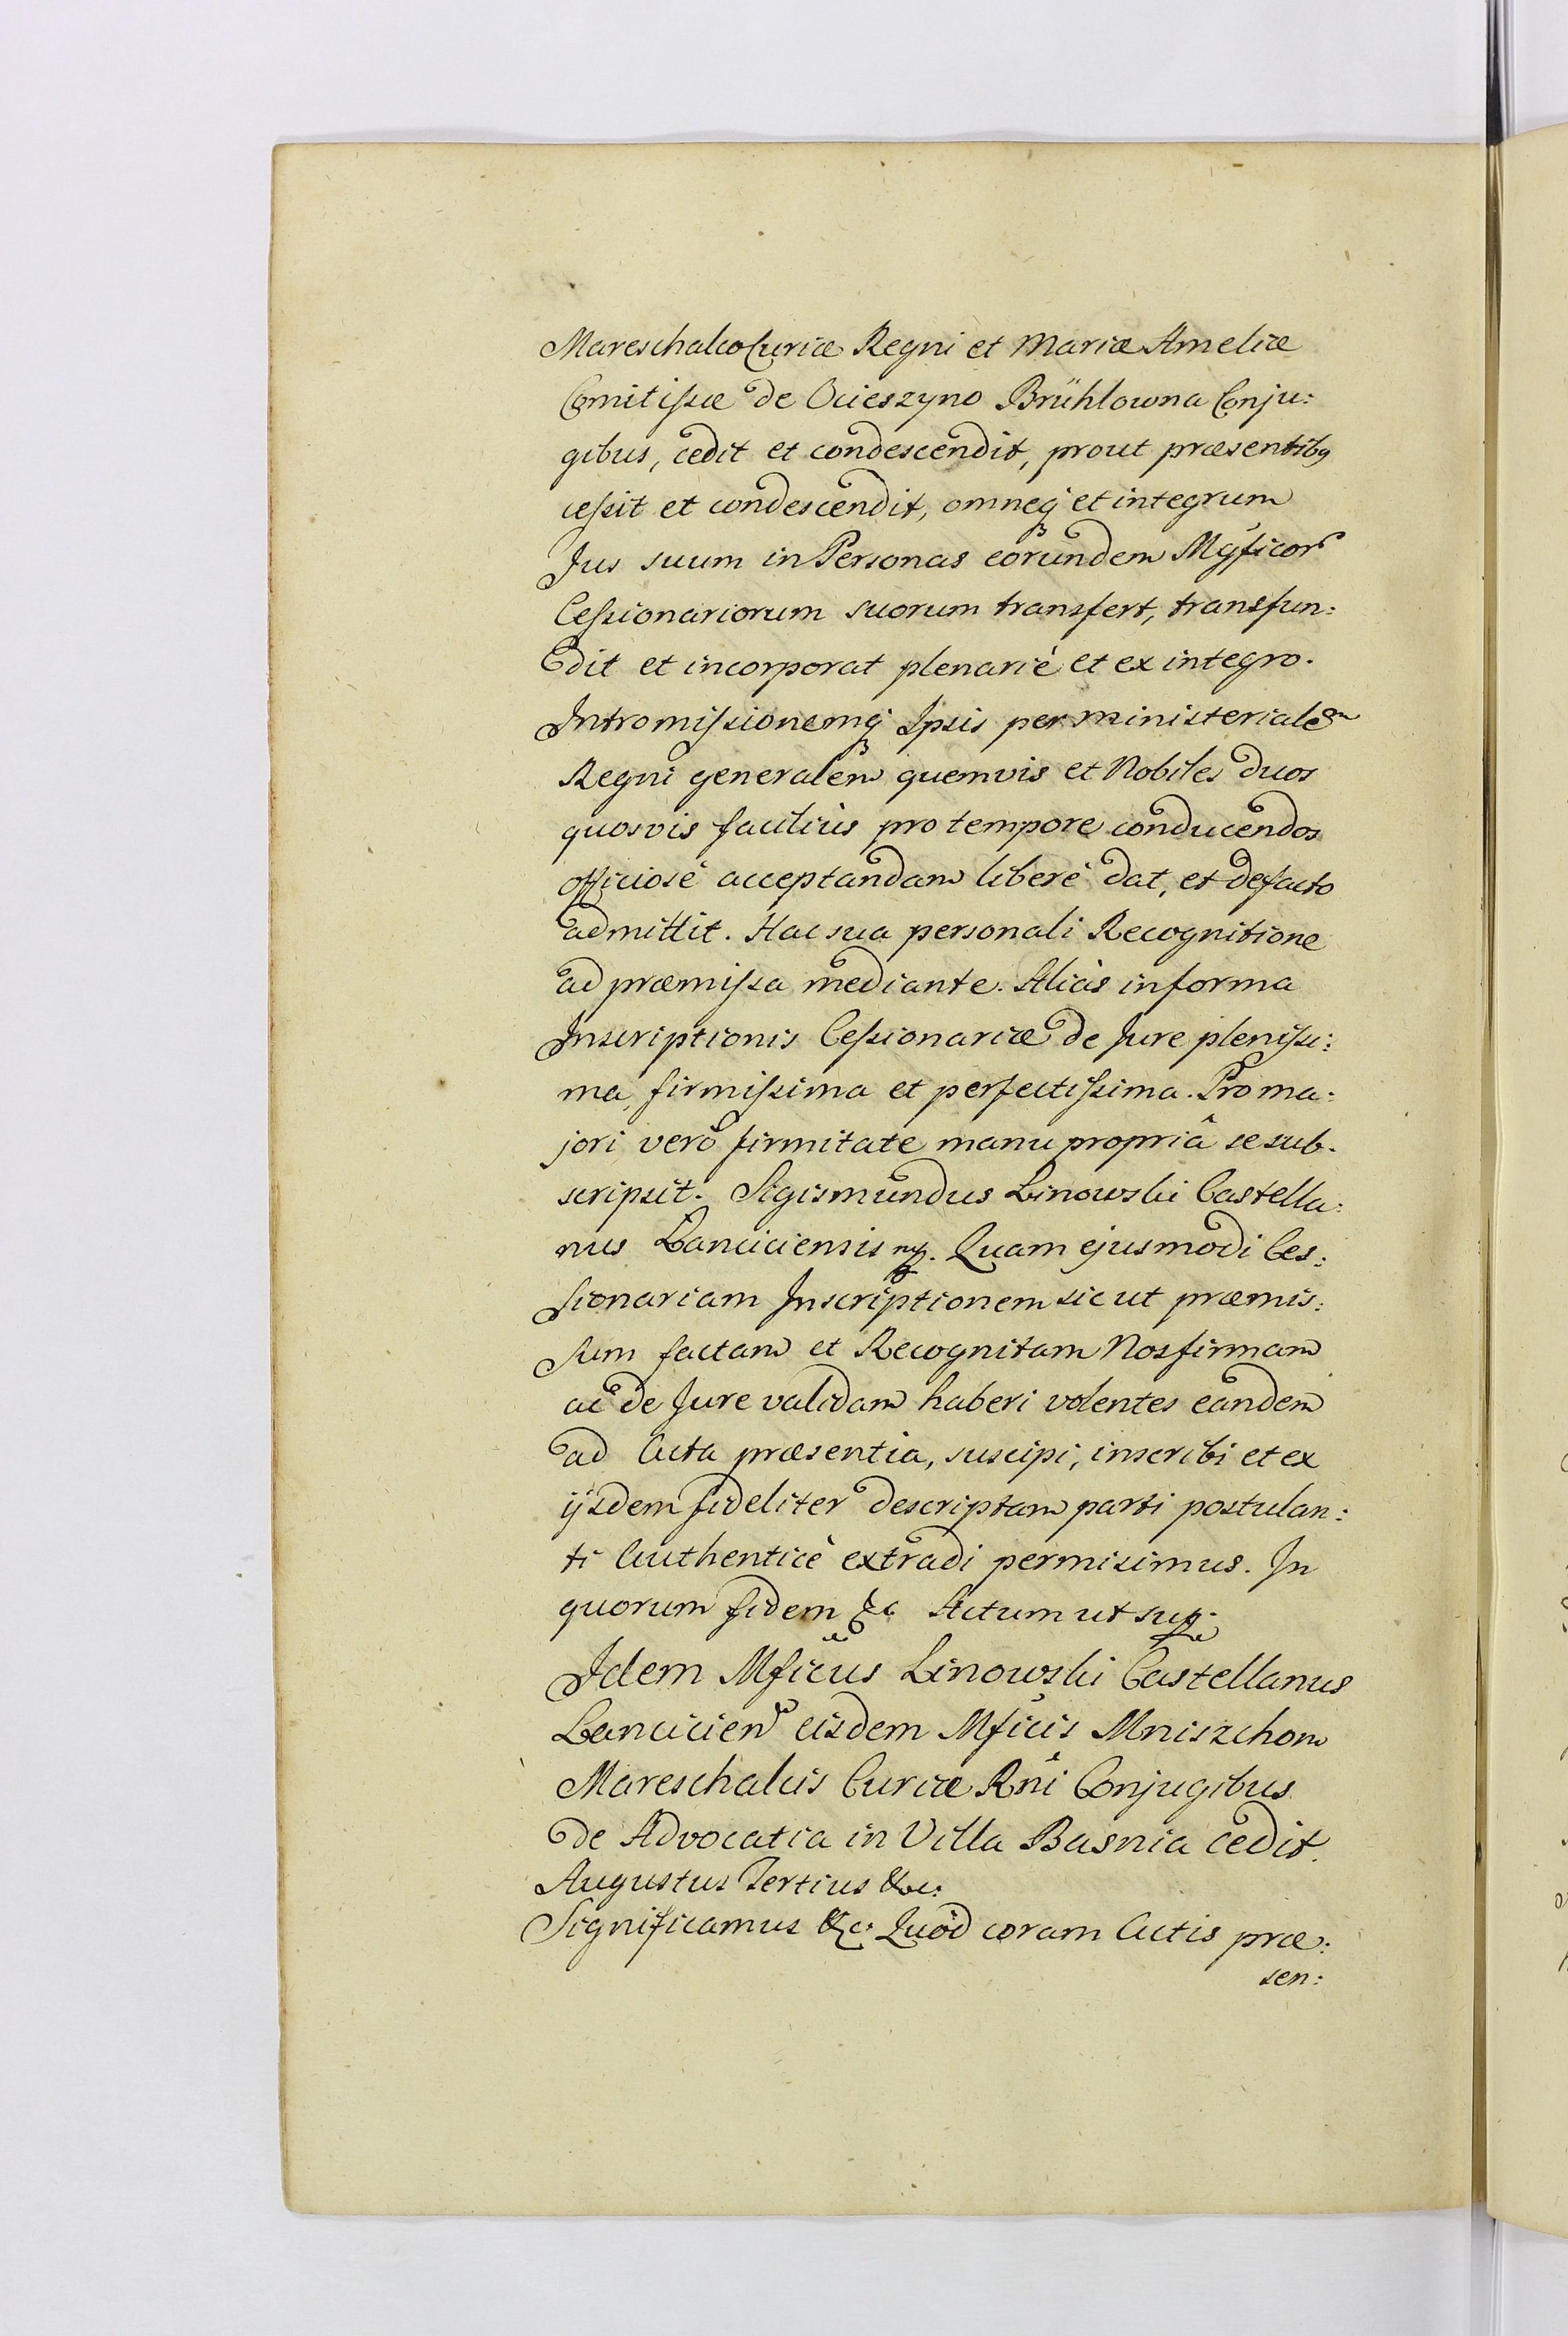 Mareschalco Curiæ Regni et Mariæ Ameliæ
Comitiſsæ de Ocieszyno Brühlowna Conju:
gibus, cedit et condescendit, prout præsentibꝯ
ceſsit et condescendit, omneqꝫ et integrum
Jus suum in Personas eorundem Mgficor
Ceſsionariorum suorum transfert, transfun:
dit et incorporat plenariè et ex integro.
Intromiſsionemqꝫ Ipsis per ministerialem
Regni generalem quemvis et Nobiles duos
quosvis faciliùs pro tempore conducendos
officiosè acceptandam liberè dat, et defacto
admittit. Hac sua personali Recognitione
ad præmiſsa mediante. Aliàs in forma
Inscriptionis Ceſsionariæ de Jure pleniſsi:
ma, firmiſsima et perfectiſsima. Pro ma:
jori verò firmitate manu propriâ se sub.
scripsit. Sigismundus Linowski Castella:
nus Łanciciensis mp. Quam ejusmodi Ces:
sionariam Inscriptionem sic ut præmis:
sum factam et Recognitam Nos firmam
ac de Jure validam haberi volentes eandem
ad Acta præsentia, suscipi, inscribi et ex
ijsdem fideliter descriptam parti postulan:
ti Authenticè extradi permisimus. In
quorum fidem &c Actum ut sup.
Idem Mficus Linowski Castellanus
Lancicien eisdem Mficis Mniszchom
Mareschalcis Curiæ Rni Conjugibus
de Advocatia in Villa Basnia cedit.
Augustus Tertius &c:
Significamus &c: Quod coram Actis præ:
sen: